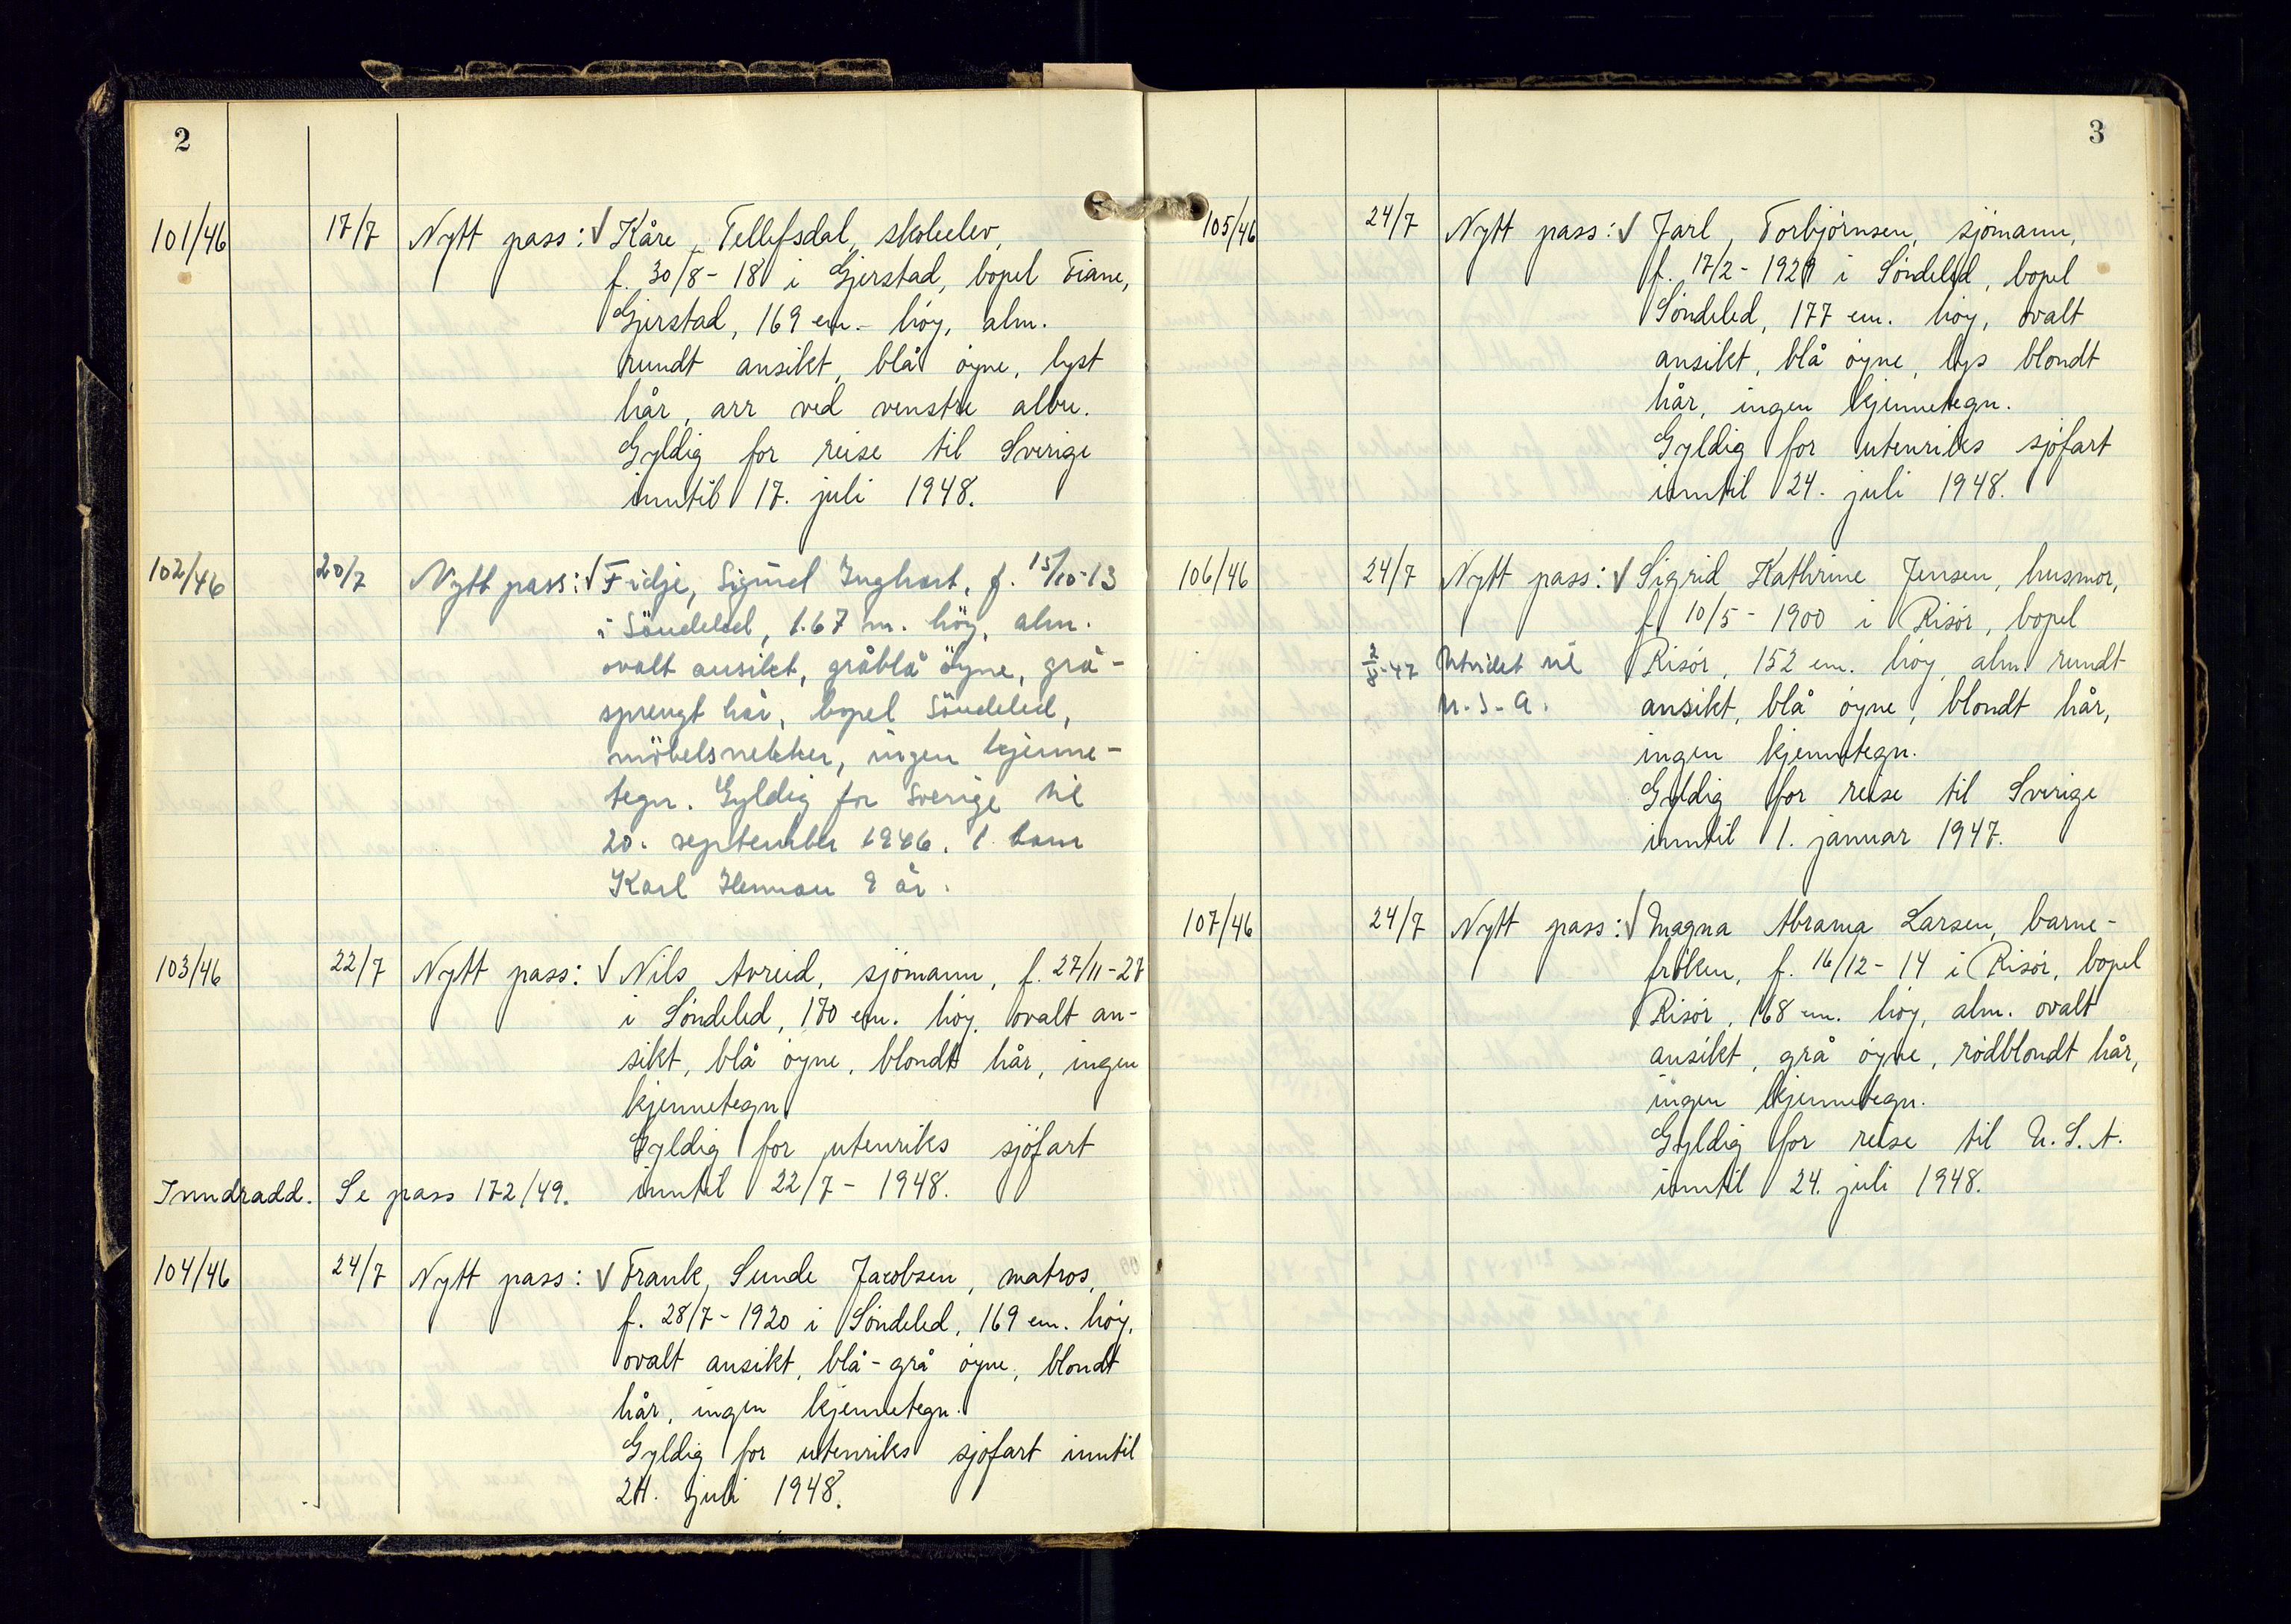 2
101/46 17/7 Nytt pass: √ Kåre Tellefsdal, skoleelev,
f. 30/8-18 i Gjerstad, bopel Fiane,
Gjerstad, 169 cm. høy, alm.
rundt ansikt, blå øyne, lyst
hår, arr ved venstre albu.
Gyldig for reise til Sverige
inntil 17. juli 1948.
102/46 20/7 Nytt pass: √ Fidje, Sigurd, f. 15/10-13
i Söndeled, 1.67 m. höy, alm.
ovalt ansikt, gråblå öyne, grå-
sprengt hår, bopel Söndeled,
möbelsnekker, ingen kjenne-
tegn. Gyldig for Sverige til
20. september 1946. 1 barn
Karl Herman 8 år.
103/46 22/7 Nytt pass: √ Nils Avreid, sjømann, f. 27/11-27
i Søndeled, 170 cm. høy, ovalt an-
sikt, blå øyne, blondt hår, ingen
kjennetegn
Gyldig for utenriks sjøfart
Inndradd. Se pass 172/49. inntil 22/7 - 1948.
104/46 24/7 Nytt pass: √ Frank, Sunde Jacobsen, matros,
f. 28/7-1920 i Søndeled, 169 cm. høy,
ovalt ansikt, blå-grå øyne, blondt
hår, ingen kjennetegn.
Gyldig for utenriks sjøfart inntil
24. juli 1948.
3
105/46 24/7 Nytt pass: √ Jarl, Torbjørnsen, sjømann,
f. 17/2-1929 i Søndeled, bopel
Søndeled, 177 cm. høy, ovalt
ansikt, blå øyne, lys blondt
hår, ingen kjennetegn.
Gyldig for utenriks sjøfart
inntil 24. juli 1948.
106/46 24/7 Nytt pass: √ Sigrid Kathrine Jensen, husmor,
f. 10/5-1900 i Risør, bopel
2/8-47 Utvidet til Risør, 152 cm. høy, alm. rundt
U.S.A. ansikt, blå øyne, blondt hår,
ingen kjennetegn.
Gyldig for reise til Sverige
inntil 1. januar 1947.
107/46 24/7 Nytt pass: √ Magna Abrama Larsen, barne-
frøken, f. 16/12-14 i Risør, bopel
Risør, 168 cm. høy, alm. ovalt
ansikt, grå øyne, rødblondt hår,
ingen kjennetegn.
Gyldig for reise til U.S.A.
inntil 24. juli 1948.